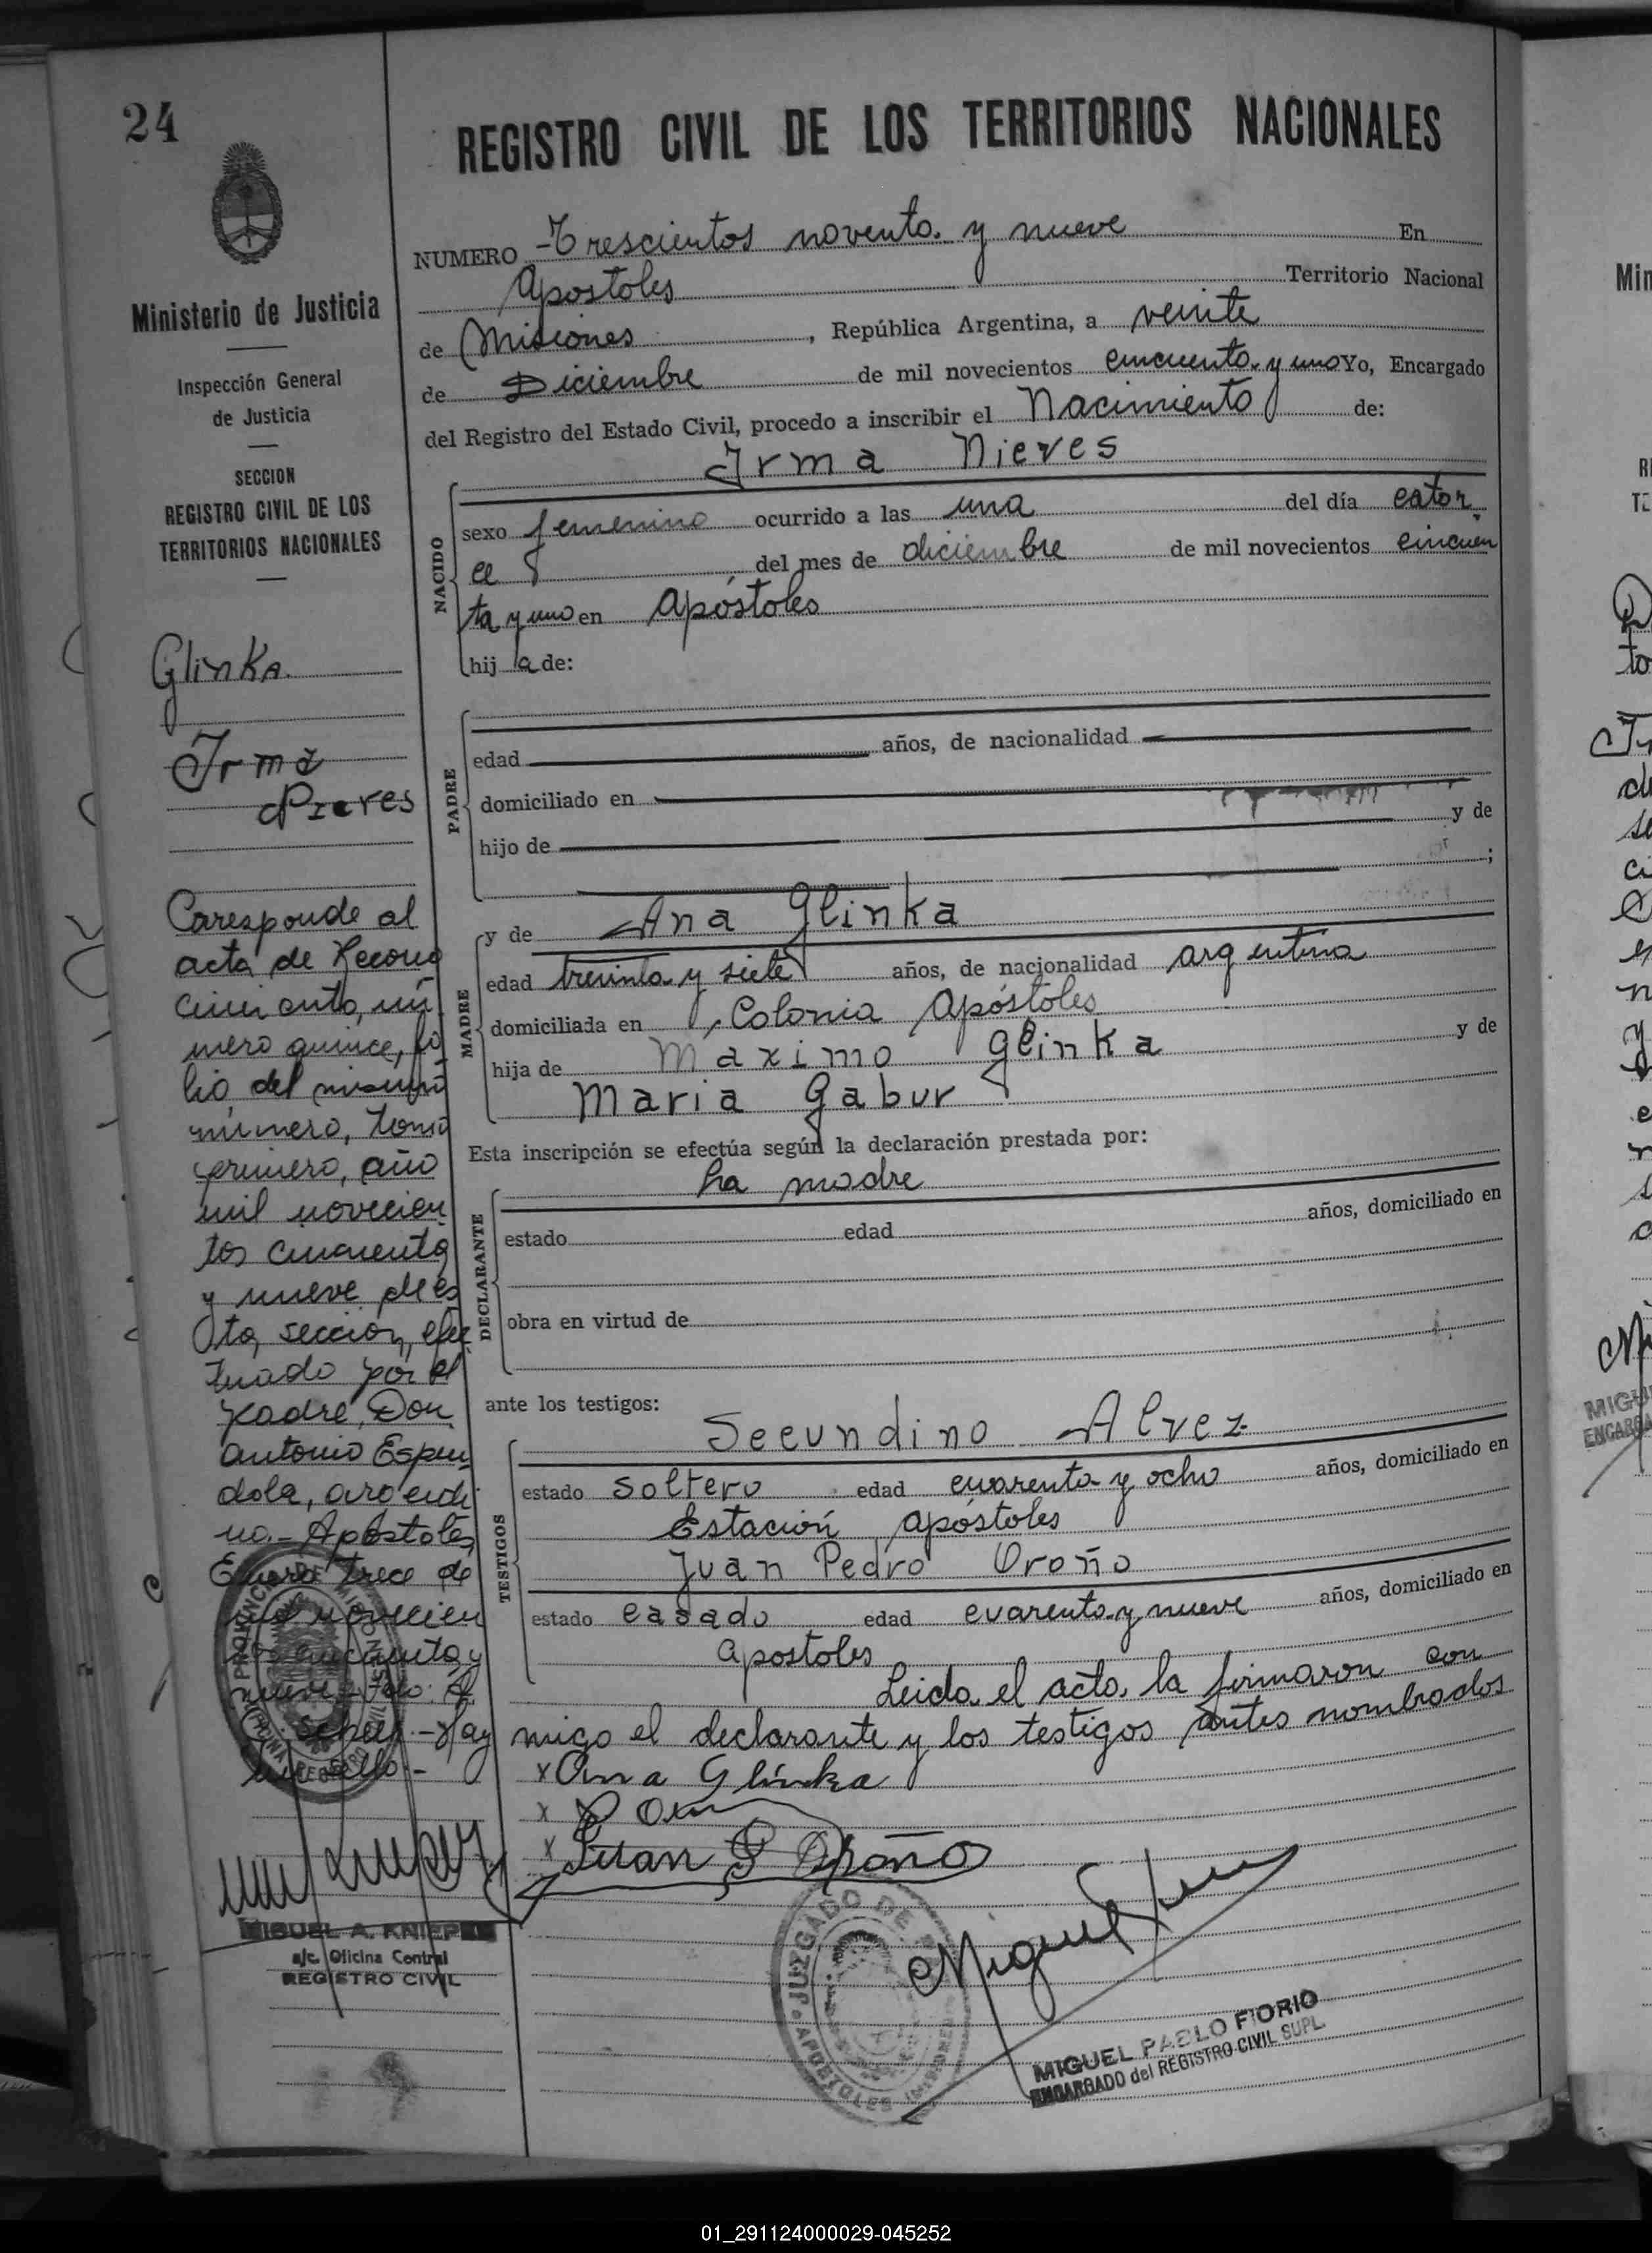 24
REGISTRO CIVIL DE LOS TERRITORIOS NACIONALES
Ministerio de Justicia
Inspección General
de Justicia
SECCION
REGISTRO CIVIL DE LOS
TERRITORIOS NACIONALES
Glinka.
Irma
Nieves
Caresponde al
acta de Recono
cimiento, nú
mero quince, fo
lio, del mismo
número, tomo
primero, año
mil novecien
tos cincuenta
y nueve de es
ta, sección, efec
tuado por el
padre, Don
Antonio Espin
dola, argenti
no.- Apóstoles,
Enero trece de
mil novecien
tos cincuenta y
nueve.-
Hay
un sello.-
MIGUEL A. KNIEP
a/c. Oficina Central
REGISTRO CIVIL
NUMERO -Trescientos noventa y nueve En
Apostoles Territorio Nacional
de Misiones, República Argentina, a veinte
de Diciembre de mil novecientos cincuenta y uno Yo, Encargado
del Registro del Estado Civil, procedo a inscribir el Nacimiento de:
Irma Nieves
NACIDO
sexo femenino ocurrido a las una del día cator
ce del mes de diciembre de mil novecientos cincuen
ta y uno en Apóstoles
hij a de:
PADRE
edad años, de nacionalidad
domiciliado en
hijo de y de
;
MADRE
y de Ana Glinka
edad treinta y siete años, de nacionalidad argentina
domiciliada en Colonia Apóstoles
hija de Maximo Glinka y de
Maria Gabur
Esta inscripción se efectúa según la declaración prestada por:
La madre
DECLARANTE
estado edad años, domiciliado en
obra en virtud de
ante los testigos:
Secundino Alvez
TESTIGOS
estado soltero edad cuarenta y ocho años, domiciliado en
Estación apóstoles
Juan Pedro Oroño
estado casado edad cuarenta y nueve años, domiciliado en
apostoles
Leida el acta, la firmaron con
migo el declarante y los testigos antes nombrados
x Ana Glinka
x
x Juan P Oroño
JUZGADO DE
APOSTOLES
Miguel
MIGUEL PABLO FIORIO
ENCARGADO del REGISTRO CIVIL SUPL.
01_291124000029-045252